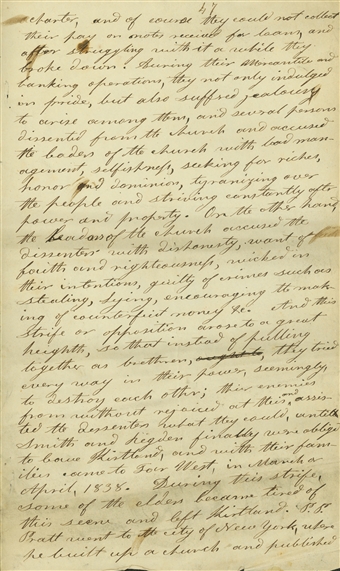 47
charter, and of course they could not collect
their pay on notes received for loans, and
after struggling with it a while they
broke down. During their mercantile and
banking operations, they not only indulged
in pride, but also suffered jealousy
to arise among them, and several persons
dissented from the church and accused
the leaders of the church with bad man-
agement, selfishness, seeking for riches,
honor and dominion, tyranizing over
the people and striving constantly after
power and property. On the other hand,
the leaders of the church accused the
dissenters with dishonesty, want of
faith and righteousness, wicked in
their intentions, guilty of crimes such as
stealing, lying, encouraging the mak-
ing of counterfeit money &c. And this
strife or opposition arose to a great
heighth, so that instead of pulling
together as brethren, they tried
every way in their power, seemingly,
to destroy each other; their enemies
from without rejoiced at this, and assis-
ted the dessenters what they could, until
Smith and Rigdon finally were obliged
to leave Kirtland, and with their fam-
ilies came to Far West, in March or
April, 1838. During this strife,
some of the elders became tired of
this scene and left Kirtland: P.P.
Pratt went to the city of New York, where
he built up a church and published